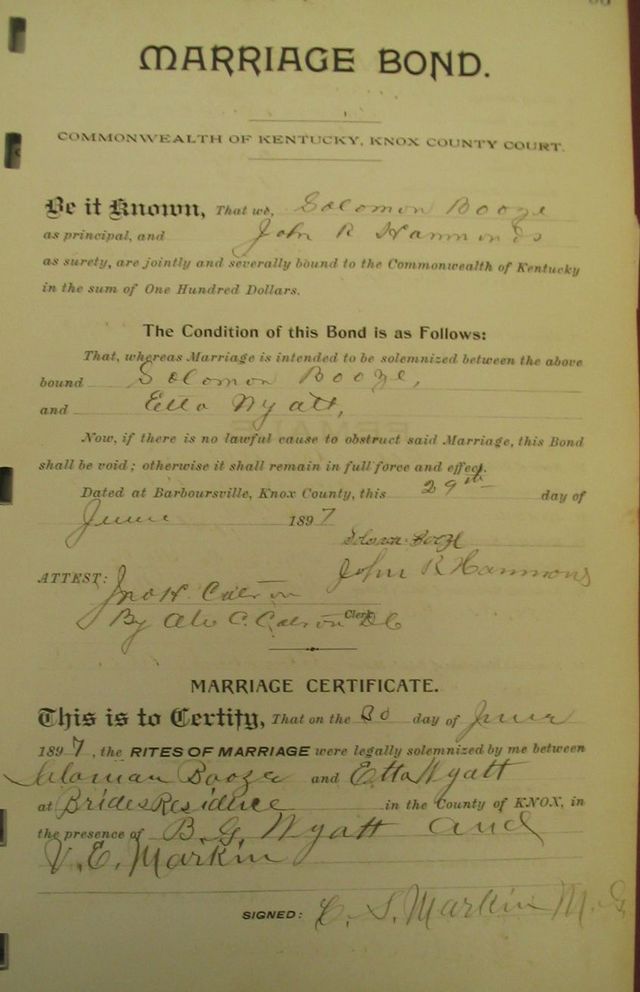 MARRIAGE BOND.
COMMONWEALTH OF KENTUCKY, KNOX COUNTY COURT.
Be it Known, That we, Solomon Booze
as principal, and John R Hammonds
as surety, are jointly and severally bound to the Commonwealth of Kentucky
in the sum of One Hundred Dollars.
The Condition of this Bond is as Follows:
That, whereas Marriage is intended to be solemnized between the above
bound Solomon Booze,
and Etta Wyatt,
Now, if there is no lawful cause to obstruct said Marriage, this Bond
shall be void; otherwise it shall remain in full force and effect.
Dated at Barboursville, Knox County, this 29th day of
June 1897
Solomon Booze
John R Hammons
ATTEST: Jno H.
By C. Clerk DC
MARRIAGE CERTIFICATE.
This is to Certify, That on the 30 day of June
1897, the RITES OF MARRIAGE were legally solemnized by me between
Soloman Booze and Etta Wyatt
at Brides Residence in the County of KNOX, in
the presence of B. G. Wyatt and
V. E. Markin
SIGNED: C. S. Markin M. G.